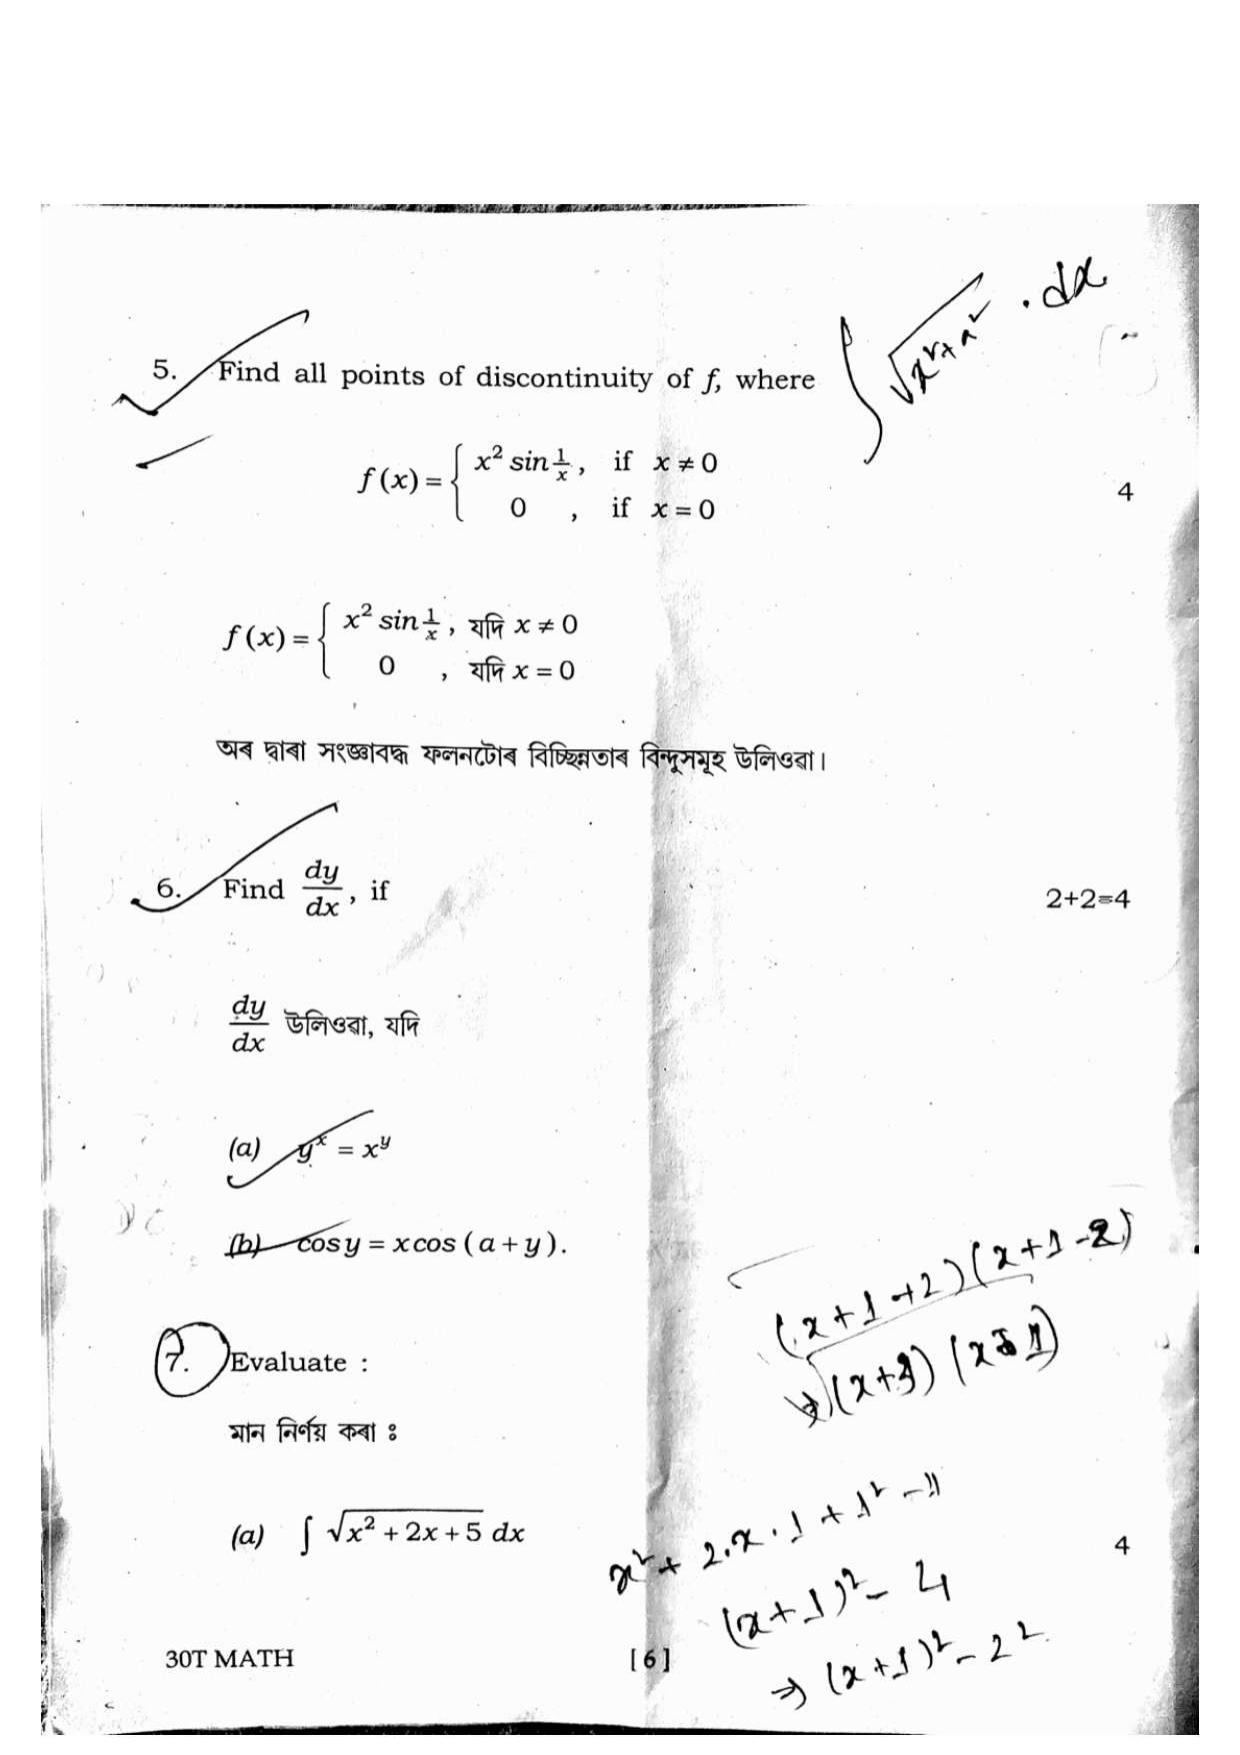 ∫ √x²+a² . dx
5. Find all points of discontinuity of f, where
f(x) = { x² sin 1/x , if x ≠ 0
0 , if x = 0
4
f(x) = { x² sin 1/x , যদি x ≠ 0
0 , যদি x = 0
অৰ দ্বাৰা সংজ্ঞাবদ্ধ ফলনটোৰ বিচ্ছিন্নতাৰ বিন্দুসমূহ উলিওৱা।
6. Find dy/dx , if 2+2=4
dy/dx উলিওৱা, যদি
(a) yˣ = xʸ
(b) cos y = x cos (a + y).
(x+1+2)(x+1-2)
7. Evaluate :
(x+3)
মান নিৰ্ণয় কৰা ঃ
x² + 2.x.1 + 1² - 1
(a) ∫ √x² + 2x + 5 dx 4
(x+1)² - 4
⇒ (x+1)² - 2²
30T MATH [ 6 ]